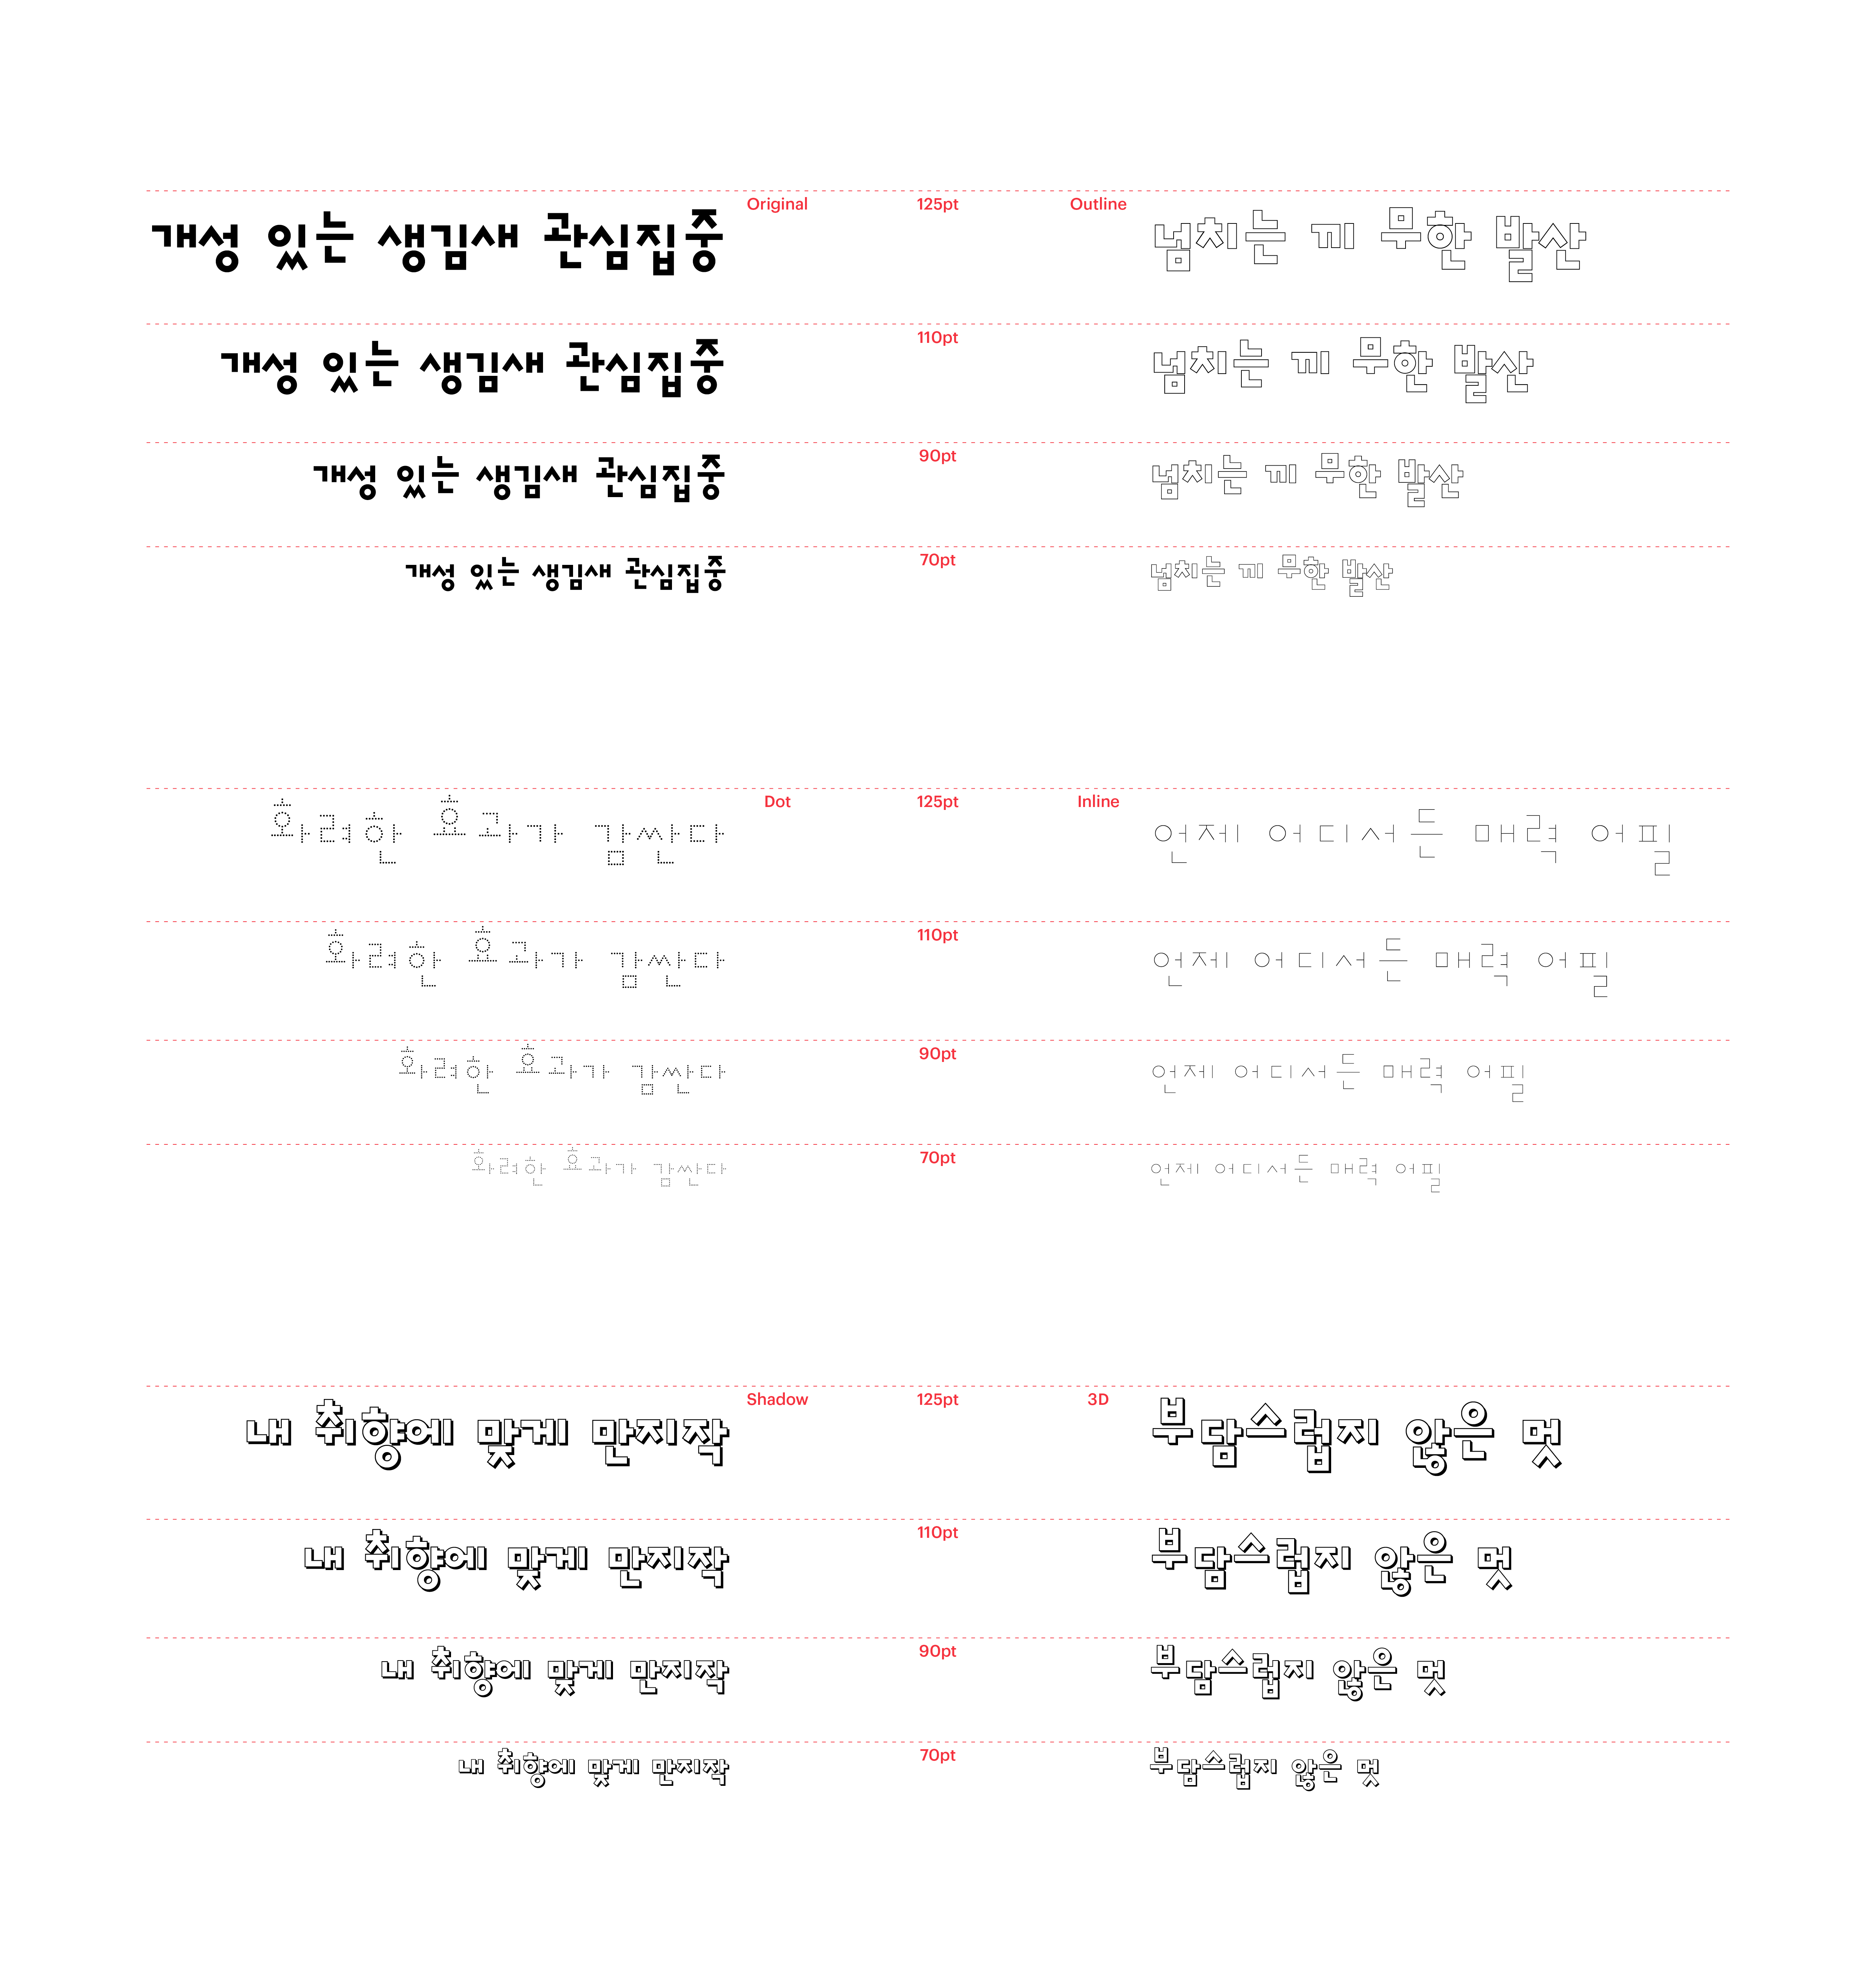 개성 있는 생김새 관심집중 Original 125pt Outline 넘치는 끼 무한 발산
개성 있는 생김새 관심집중 110pt 넘치는 끼 무한 발산
개성 있는 생김새 관심집중 90pt 넘치는 끼 무한 발산
개성 있는 생김새 관심집중 70pt 넘치는 끼 무한 발산
화려한 효과가 감싼다 Dot 125pt Inline 언제 어디서든 매력 어필
화려한 효과가 감싼다 110pt 언제 어디서든 매력 어필
화려한 효과가 감싼다 90pt 언제 어디서든 매력 어필
화려한 효과가 감싼다 70pt 언제 어디서든 매력 어필
내 취향에 맞게 만지작 Shadow 125pt 3D 부담스럽지 않은 멋
내 취향에 맞게 만지작 110pt 부담스럽지 않은 멋
내 취향에 맞게 만지작 90pt 부담스럽지 않은 멋
내 취향에 맞게 만지작 70pt 부담스럽지 않은 멋